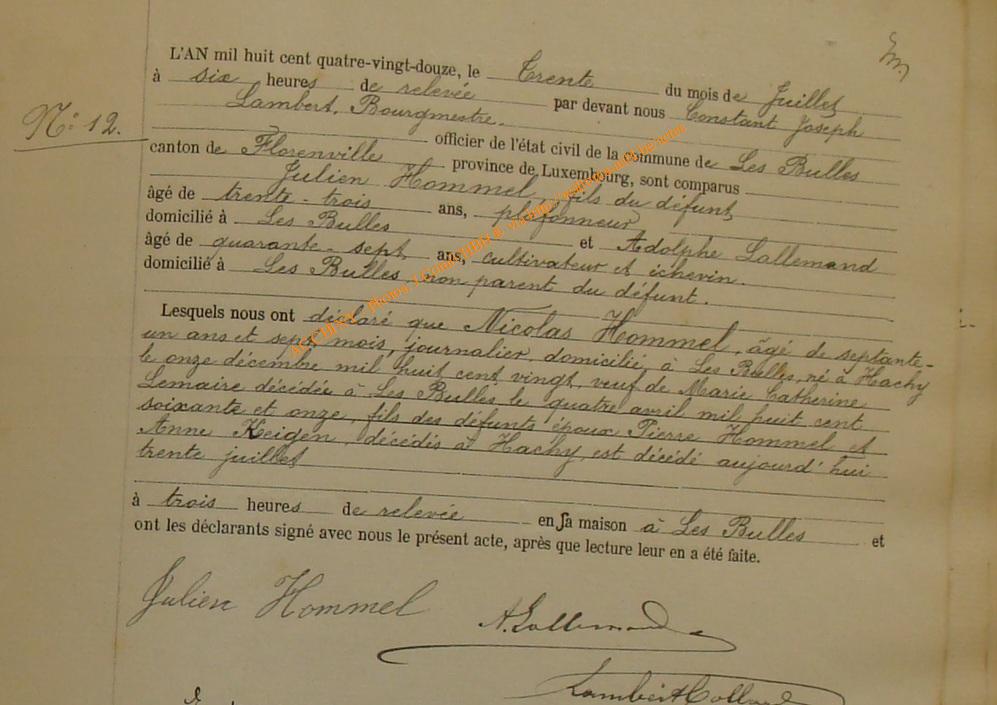 L'AN mil huit cent quatre-vingt-douze, le Trente du mois de Juillet
à six heures de relevée par devant nous Constant Joseph
Lambert, Bourgmestre
N° 12.
officier de l'état civil de la commune de Les Bulles
canton de Florenville province de Luxembourg, sont comparus
Julien Hommel, fils du défunt,
âgé de trente-trois ans, plafonneur
domicilié à Les Bulles et Adolphe Lallemand
âgé de quarante-sept ans, cultivateur et échevin.
domicilié à Les Bulles non parent du défunt.
Lesquels nous ont déclaré que Nicolas Hommel, âgé de septante-
un ans et sept mois, journalier, domicilié à Les Bulles, né à Hachy
le onze décembre mil huit cent vingt, veuf de Marie Catherine
Lemaire décédée à Les Bulles le quatre avril mil huit cent
soixante et onze, fils des défunts époux Pierre Hommel et
Anne Keigen, décédés à Hachy, est décédé aujourd'hui
trente juillet
à trois heures de relevée en sa maison à Les Bulles et
ont les déclarants signé avec nous le présent acte, après que lecture leur en a été faite.
Julien Hommel
A. Lallemand
Lambert